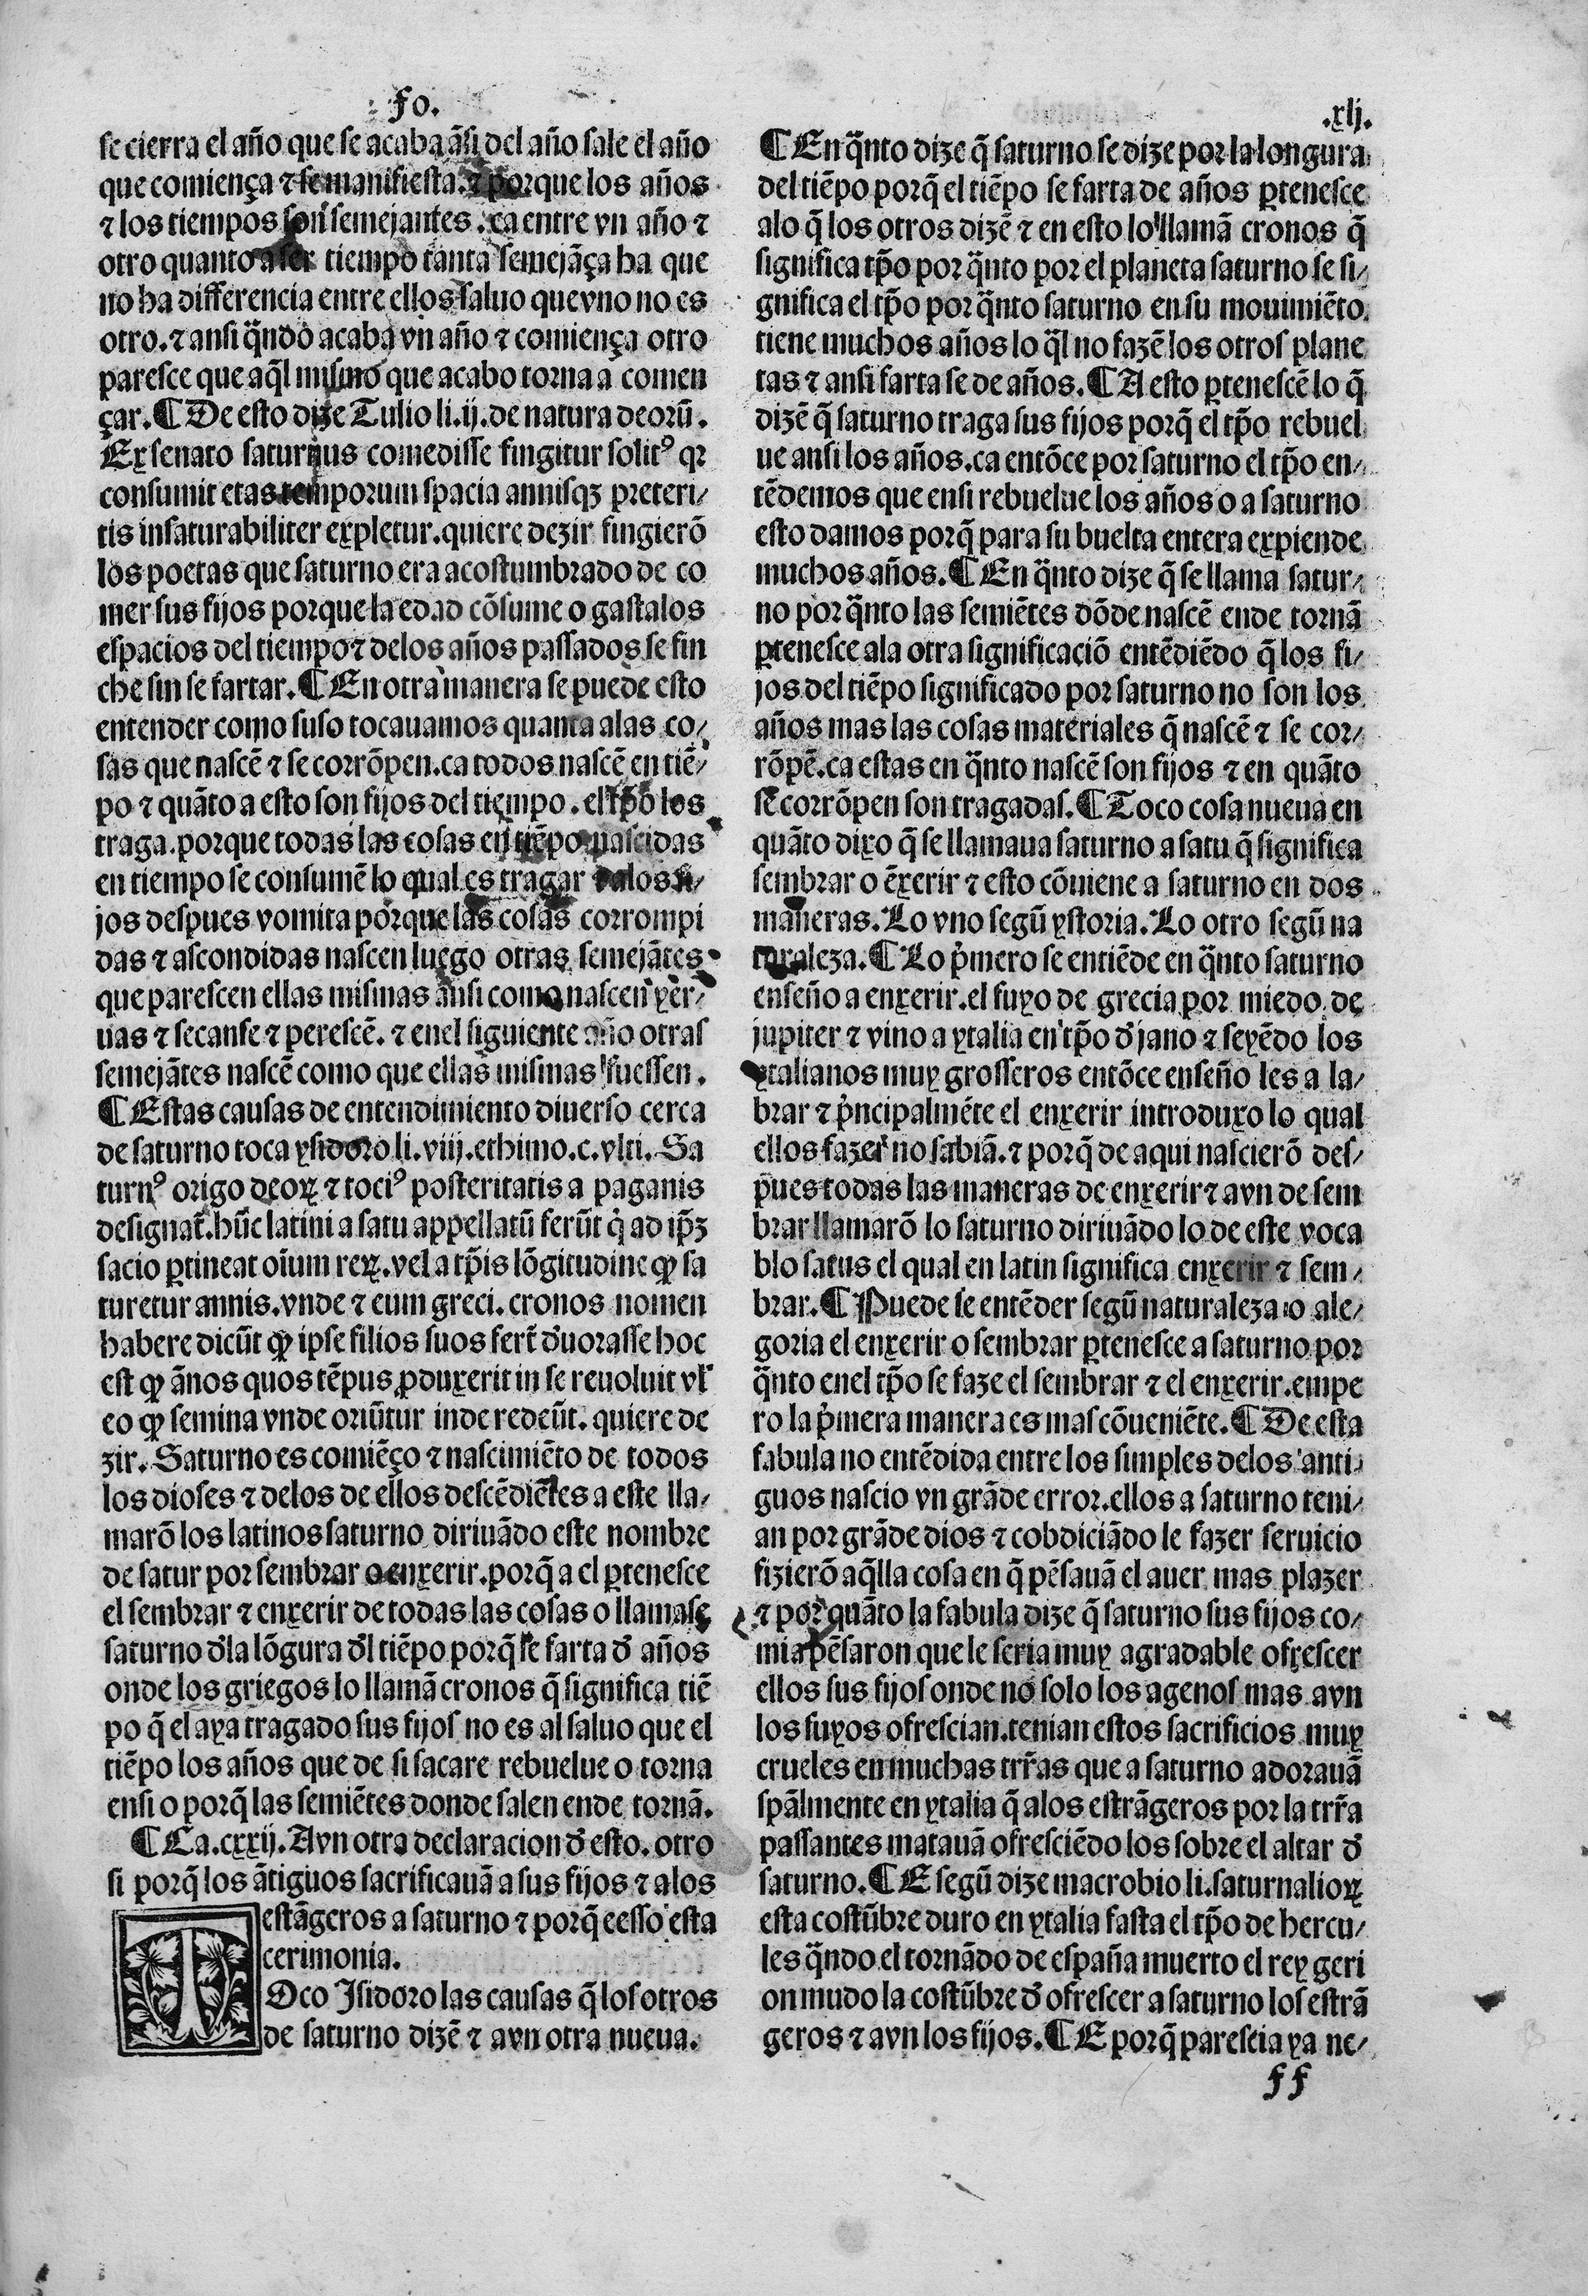 fo.
.xlj.
se cierra el año que se acaba ãsi del año sale el año
que comiença ⁊ se manifiesta. ⁊ porque los años
⁊ los tiempos son semejantes. ca entre vn año ⁊
otro quanto a ser tiempo tanta semejãça ha que
no ha differencia entre ellos saluo que vno no es
otro. ⁊ ansi q̃ndo acaba vn año ⁊ comiença otro
paresce que aq̃l mismo que acabo torna a comen
çar. ¶ De esto dize Tulio li. ij. de natura deorũ.
Ex senato saturnus comedisse fingitur solitꝰ qꝛ
consumit etas temporum spacia annisqꝫ preteri/
tis insaturabiliter expletur. quiere dezir fingierõ
los poetas que saturno era acostumbrado de co
mer sus fijos porque la edad cõsume o gasta los
espacios del tiempo ⁊ delos años passados se fin
che sin se fartar. ¶ En otra manera se puede esto
entender como suso tocauamos quanta alas co/
sas que nascẽ ⁊ se corrõpen. ca todos nascẽ en tiẽ/
po ⁊ quãto a esto son fijos del tiempo. el tp̃o los
traga. porque todas las cosas en tiẽpo nascidas
en tiempo se consumẽ lo qual es tragar alos fi/
jos despues vomita porque las cosas corrompi
das ⁊ ascondidas nascen luego otras semejãtes
que parescen ellas mismas ansi como nascen yer/
uas ⁊ secanse ⁊ perescẽ. ⁊ enel siguiente año otras
semejãtes nascẽ como que ellas mismas fuessen.
¶ Estas causas de entendimiento diuerso cerca
de saturno toca ysidoro li. viij. ethimo. c. vlti. Sa
turnꝰ origo deoꝝ ⁊ tociꝰ posteritatis a paganis
designat̃. hũc latini a satu appellatũ ferũt q̓ ad ip̃ꝫ
sacio ꝑtineat oĩum reꝝ. vel a tp̃is lõgitudine ꝙ sa
turetur annis. vnde ⁊ eum greci. cronos nomen
habere dicũt ꝙ ipse filios suos fert̃ d̓uorasse hoc
est ꝙ ãnos quos tẽpus ꝓduxerit in se reuoluit vl̓
eo ꝙ semina vnde oriũtur inde redeũt. quiere de
zir. Saturno es comiẽço ⁊ nascimiẽto de todos
los dioses ⁊ delos de ellos descẽdiẽtes a este lla/
marõ los latinos saturno diriuãdo este nombre
de satur por sembrar o enxerir. porq̃ a el ꝑtenesce
el sembrar ⁊ enxerir de todas las cosas o llamase
saturno d̓la lõgura d̓l tiẽpo porq̃ se farta d̓ años
onde los griegos lo llamã cronos q̃ significa tiẽ
po q̃ el aya tragado sus fijos no es al saluo que el
tiẽpo los años que de si sacare rebuelue o torna
ensi o porq̃ las semiẽtes donde salen ende tornã.
¶ Ca. cxxij. Avn otra declaracion d̓ esto. otro
si porq̃ los ãtiguos sacrificauã a sus fijos ⁊ alos
estãgeros a saturno ⁊ porq̃ cesso esta
cerimonia.
TOco Isidoro las causas q̃ los otros
de saturno dizẽ ⁊ avn otra nueua.
¶ En q̃nto dize q̃ saturno se dize por la longura
del tiẽpo porq̃ el tiẽpo se farta de años ꝑtenesce
alo q̃ los otros dizẽ ⁊ en esto lo llamã cronos q̃
significa tp̃o por q̃nto por el planeta saturno se si/
gnifica el tp̃o por q̃nto saturno en su mouimiẽto
tiene muchos años lo q̃l no fazẽ los otros plane
tas ⁊ ansi farta se de años. ¶ A esto ꝑtenescẽ lo q̃
dizẽ q̃ saturno traga sus fijos porq̃ el tp̃o rebuel
ue ansi los años. ca entõce por saturno el tp̃o en/
tẽdemos que ensi rebuelue los años o a saturno
esto damos porq̃ para su buelta entera expiende
muchos años. ¶ En q̃nto dize q̃ se llama satur/
no por q̃nto las semiẽtes dõde nascẽ ende tornã
ꝑtenesce ala otra significaciõ entẽdiẽdo q̃ los fi/
jos del tiẽpo significado por saturno no son los
años mas las cosas materiales q̃ nascẽ ⁊ se cor/
rõpẽ. ca estas en q̃nto nascẽ son fijos ⁊ en quãto
se corrõpen son tragadas. ¶ Toco cosa nueua en
quãto dixo q̃ se llamaua saturno a satu q̃ significa
sembrar o ẽxerir ⁊ esto cõuiene a saturno en dos
maneras. Lo vno segũ ystoria. Lo otro segũ na
turaleza. ¶ Lo p̓mero se entiẽde en q̃nto saturno
enseño a enxerir. el fuyo de grecia por miedo de
jupiter ⁊ vino a ytalia en tp̃o d̓ jano ⁊ seyẽdo los
ytalianos muy grosseros entõce enseño les a la/
brar ⁊ p̓ncipalmẽte el enxerir introduxo lo qual
ellos fazer no sabiã. ⁊ porq̃ de aqui nascierõ des/
pues todas las maneras de enxerir ⁊ avn de sem
brar llamarõ lo saturno diriuãdo lo de este voca
blo satus el qual en latin significa enxerir ⁊ sem/
brar. ¶ Puede se entẽder segũ naturaleza o ale/
goria el enxerir o sembrar ꝑtenesce a saturno por
q̃nto enel tp̃o se faze el sembrar ⁊ el enxerir. empe
ro la p̓mera manera es mas cõueniẽte. ¶ De esta
fabula no entẽdida entre los simples delos anti/
guos nascio vn grãde error. ellos a saturno teni/
an por grãde dios ⁊ cobdiciãdo le fazer seruicio
fizierõ aq̃lla cosa en q̃ pẽsauã el auer mas plazer
⁊ por quãto la fabula dize q̃ saturno sus fijos co/
mia pẽsaron que le seria muy agradable ofrescer
ellos sus fijos onde no solo los agenos mas avn
los suyos ofrescian. tenian estos sacrificios muy
crueles en muchas trr̃as que a saturno adorauã
spãlmente en ytalia q̃ alos estrãgeros por la trr̃a
passantes matauã ofresciẽdo los sobre el altar d̓
saturno. ¶ E segũ dize macrobio li. saturnalioꝝ
esta costũbre duro en ytalia fasta el tp̃o de hercu/
les q̃ndo el tornãdo de españa muerto el rey geri
on mudo la costũbre d̓ ofrescer a saturno los estrã
geros ⁊ avn los fijos. ¶ E porq̃ parescia ya ne/
ff